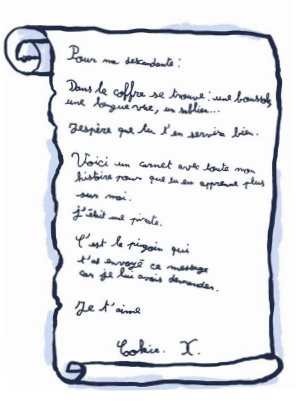 Pour ma descendante :
Dans le coffre se trouve : une boussole,
une longue vue, un sablier...
J'espère que tu t'en servira bien.
Voici un carnet avec toute mon
histoire pour que tu en apprenne plus
sur moi.
J'était une pirate.
C'est le pingoin qui
t'as envoyé ce message
car je lui avais demander.
Je t'aime
Cookie. X.